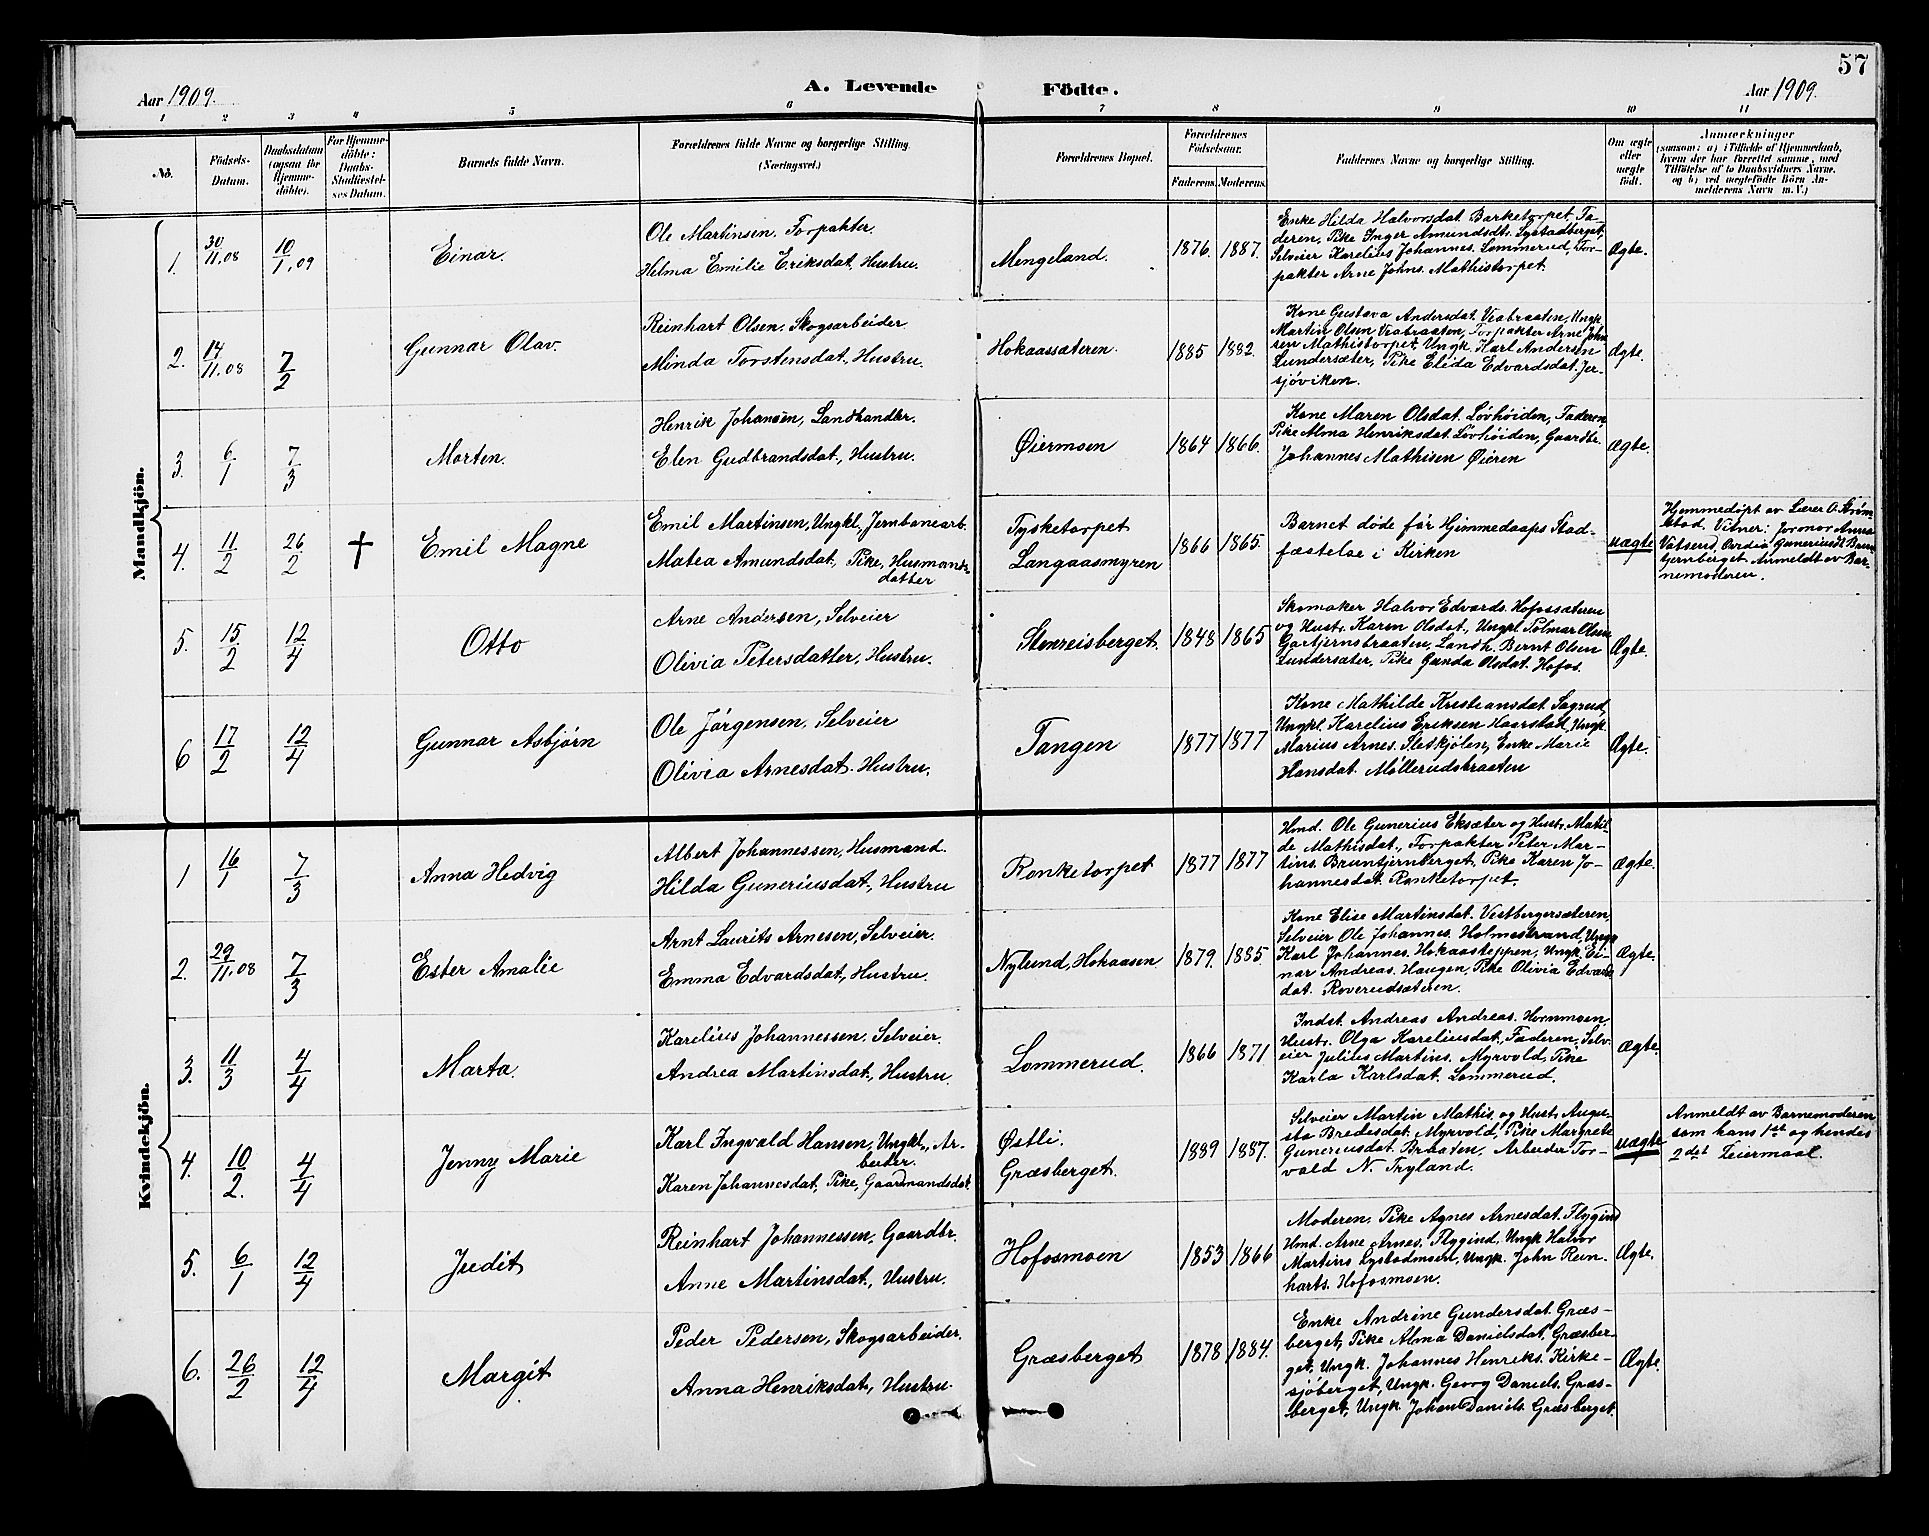 57
Aar 1909.
A. Levende Födte.
Aar 1909.
1 2 3 4 5 6 7 8 9 10 11
No.
Födsels-
Datum.
Daabsdatum
(ogsaa for
Hjemme-
döbte).
For Hjemme-
döbte:
Daabs-
Stadfæstel-
ses Datum.
Barnets fulde Navn.
Forældrenes fulde Navne og borgerlige Stilling
(Næringsvei.)
Forældrenes Bopæl.
Forældrenes
Födselsaar.
Faderens. Moderens.
Faddernes Navne og borgerlige Stilling.
Om ægte
eller
uægte
födt.
Anmærkninger
(saasom: a) i Tilfælde af Hjemmedaab,
hvem der har forrettet samme, med
Tilföielse af to Daabsvidners Navne,
og b) ved uægtefödte Börn An-
melderens Navn m. V.)
Mandkjön.
1. 30/11.08 10/1.09 Einar.
Ole Martinsen. Forpakter.
Helma Emilie Eriksdat. Hustru.
Mengeland. 1876. 1887.
Enke Hilda Halvorsdat. Barketorpet, Fa-
deren, Pike Inger Amundsdt. Lystadberget,
Selveier Karelius Johannes. Lommerud, For-
pakter Arne Johns. Mathistorpet.
Ægte.
2. 14/11.08 7/2 Gunnar Olav.
Reinhart Olsen. Skogsarbeider.
Minda Torstensdat. Hustru.
Hokaassæteren. 1885 1882.
Kone Gustava Andersdat. Viabraaten, Ungk.
Martin Olsen Viabraaten, Forpakter Arne John
sen Mathistorpet. Ungk. Karl Andersen
Lundersæter, Pike Elida Edvardsdat. Jer-
sjöviken.
Ægte.
3. 6/1 7/3 Morten.
Henrik Johansen, Landhandler.
Elen Gudbrandsdat., Hustru.
Øiermoen 1864 1866.
Kone Maren Olsdat. Løvhøiden, Faderen,
Pike Alma Henriksdat. Løvhøiden, Gaardbr.
Johannes Mathisen Øieren
Ægte.
4. 11/2 26/2 † Emil Magne
Emil Martinsen, Ungkl., Jernbanearb.
Matea Amundsdat., Pike, Husmands-
datter
Tysketorpet
Langaasmyren
1866 1865.
Barnet døde før Hjemmedaaps Stad-
fæstelse i Kirken
uægte
Hjemmedøpt av Lærer O. Strøm
stad. Vitner: Jormor Anna
Vatsend, Ovidia Guneriusdt. Brun
tjernberget. Anmeldt av Bar-
nemoderen.
5. 15/2 12/4 Otto
Arne Andersen, Selveier
Olivia Petersdatter, Hustru.
Stenreisberget. 1848 1865
Skomaker Halvor Edvards. Hofossæteren
og Hustr. Karen Olsdat., Ungkl. Tolmar Olsen
Gartjernsbraaten, Landh. Bernt Olsen
Lundersæter, Pike Gunda Olsdat. Hofos.
Ægte.
6 17/2 12/4 Gunnar Asbjørn
Ole Jörgensen, Selveier
Olivia Arnesdat. Hustru.
Tangen 1877 1877
Kone Mathilde Kristiansdat. Sagrud,
Ungkl. Karelius Eriksen Haarstad, Ungk.
Marius Arnes. Sletkjölen, Enke Marie
Hansdat. Möllerudsbraaten
Ægte.
Kvindekjön.
1 16/1 7/3 Anna Hedvig
Albert Johannessen, Husmand.
Hilda Guneriusdat., Hustru
Ronketorpet 1877 1877
Hmd. Ole Gunerius Eksæter og Hustr. Matil
de Mathisdat., Forpakter Peter Mar-
tins. Bruntjernberget, Pike Karen Jo-
hannesdat. Ronketorpet.
Ægte.
2. 29/11.08 7/3 Ester Amalie
Arnt Laurits Arnesen, Selveier.
Emma Edvardsdat., Hustru.
Nylund, Hokaasen. 1879. 1885
Kone Elise Martinsdat. Vestbergersæteren,
Selveier Ole Johannes. Holmestrand, Ungk.
Karl Johannes. Hokaasteppen, Ungk. Ei-
nar Andreas. Haugen, Pike Olivia Edvards
dat. Roverudsæteren.
Ægte.
3. 11/3 4/4 Marta.
Karelius Johannessen, Selveier.
Andrea Martinsdat., Hustru.
Lommerud. 1866 1871
Indst. Andreas Andreas. Hornmoen,
Hustr. Olga Kareliusdat., Faderen, Selv-
eier Julius Martins. Myrvold, Pike
Karla Karlsdat. Lommerud.
Ægte.
4. 10/2. 4/4 Jenny Marie
Karl Ingvald Hansen, Ungkl., Ar-
beider.
Karen Johannesdat., Pike, Gaardmandsdat.
Østli.
Græsberget.
1889 1887.
Selveier Martin Mathis. og Hustr. Augu-
sta Bredesdat. Myrvold, Pike Margrete
Guneriusdat. Braaten, Arbeider Tor-
vald N. Tryland.
uægte
Anmeldt av Barnemoderen
som hans 1st og hendes
2det Leiermaal.
5. 6/1 12/4 Judit
Reinhart Johannessen, Gaardbr.
Anne Martinsdat., Hustru.
Hofosmoen 1853 1866
Moderen, Pike Agnes Arnesdat. Flygind
Hmd. Arne Arnes. Flygind, Ungk. Halvor
Martins. Lysbodmoen, Ungk. John Rein-
harts. Hofosmoen.
Ægte.
6. 26/2 12/4 Margit
Peder Pedersen, Skogsarbeider.
Anna Henriksdat., Hustru.
Græsberget 1878 1884.
Enke Andrine Gundersdat. Græs-
berget, Pike Alma Danielsdat. Græsber-
get, Ungk. Johannes Henriks. Kirke-
sjöberget, Ungk. Georg Daniels. Græs-
berget, Ungk. Johan Daniels. Græsberget.
Ægte.